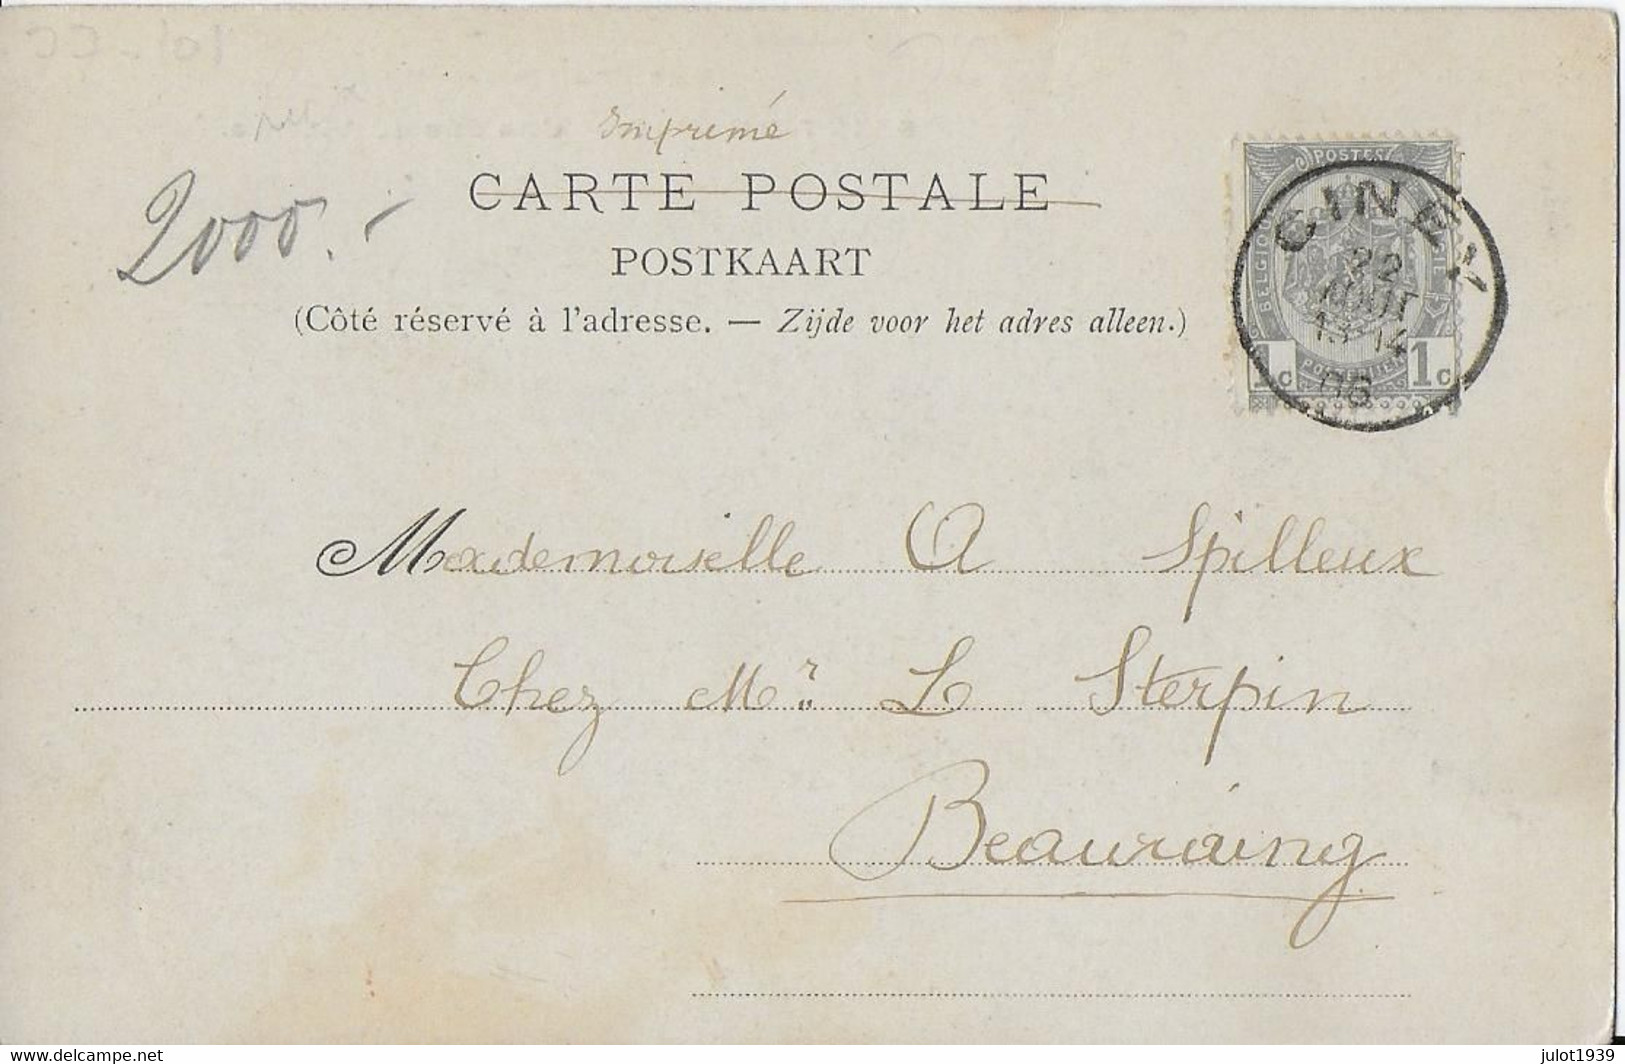 Imprimé
CARTE POSTALE
2000.-
POSTKAART
(Côté réservé à l'adresse. — Zijde voor het adres alleen.)
POSTES
BELGIQUE
1c 1c
CINEY
22
AOUT
13-14
06
Mademoiselle A Spilleux
Chez Mr. L Sterpin
Beauraing
www.delcampe.net
julot1939